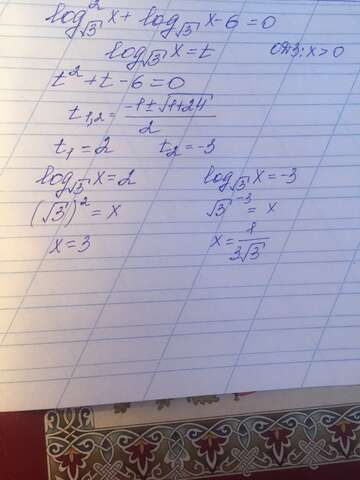 log²√3 x + log√3 x - 6 = 0
log√3 x = t ОДЗ: x > 0
t² + t - 6 = 0
t₁,₂ = (-1 ± √(1+24)) / 2
t₁ = 2 t₂ = -3
log√3 x = 2 log√3 x = -3
(√3)² = x √3⁻³ = x
x = 3 x = 1/(3√3)